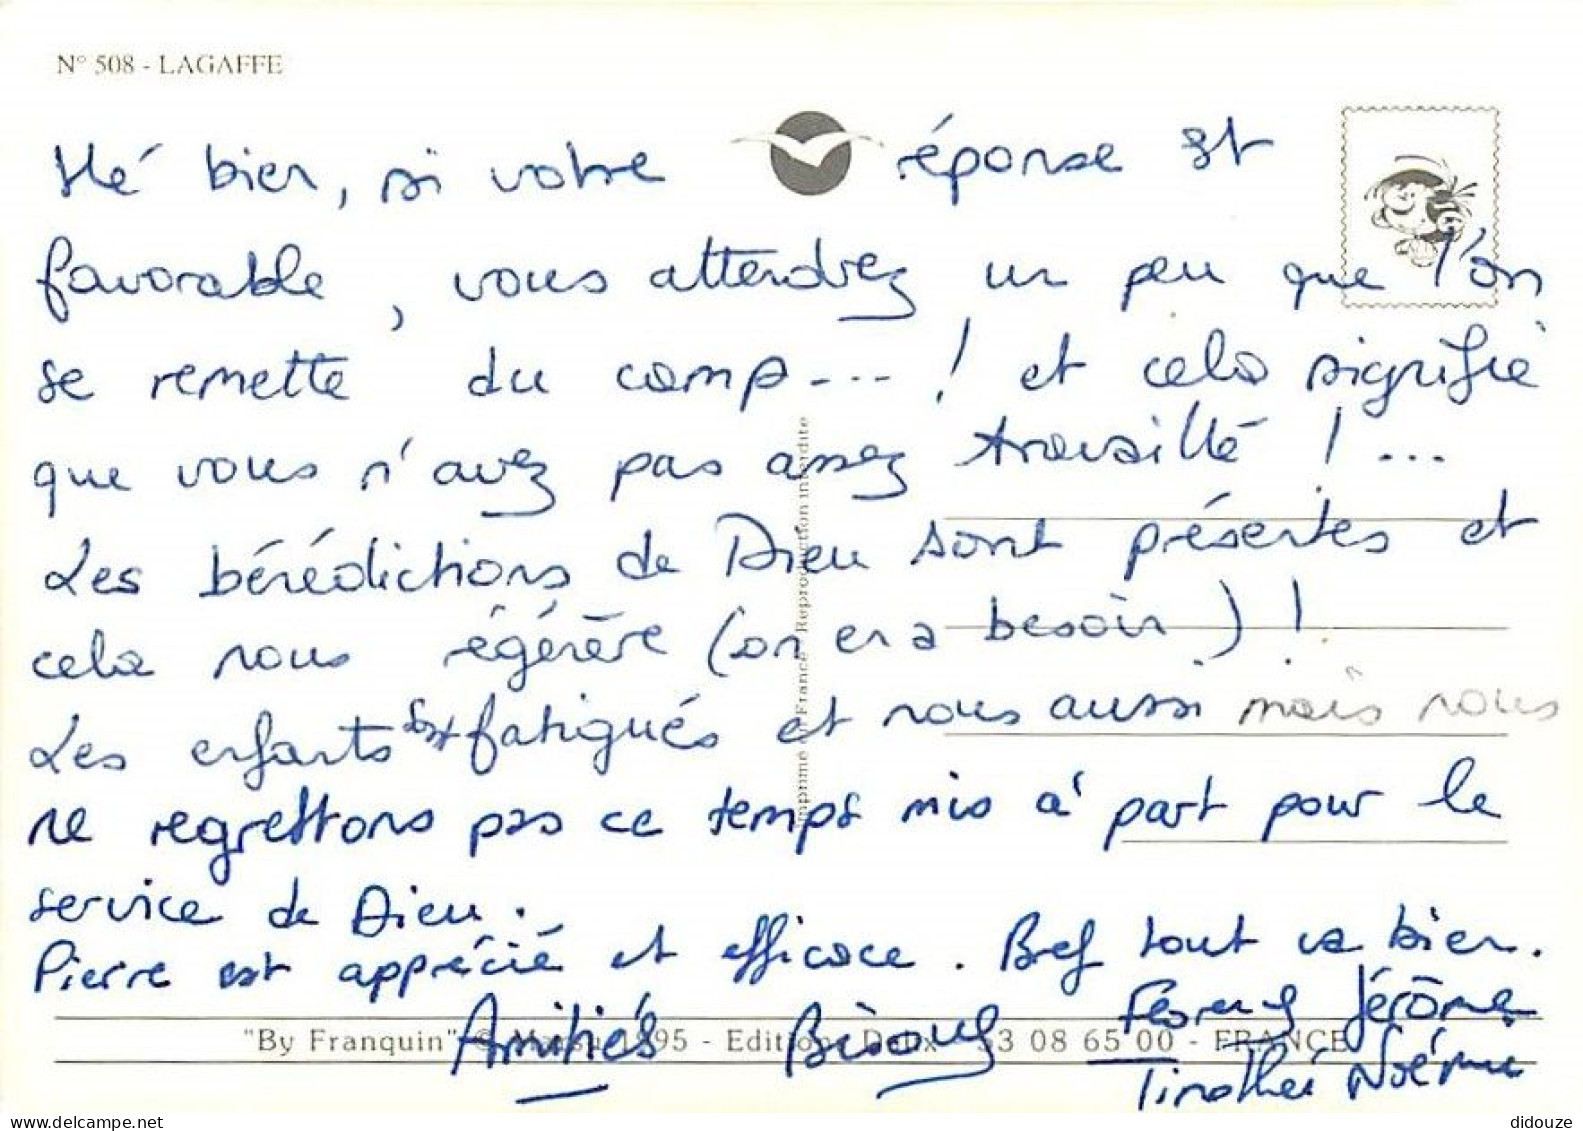 N° 508 - LAGAFFE
Hé bien, si votre réponse est
favorable, vous attendrez un peu que l'on
se remette du camp.... ! et cela signifie
que vous n'avez pas assez travaillé ! ...
Les bénédictions de Dieu sont présentes et
cela nous régénère (on en a besoin) !
Les enfants sont fatigués et nous aussi mais nous
ne regrettons pas ce temps mis à part pour le
service de Dieu.
Pierre est apprécié et efficace. Bref tout va bien.
Amitiés Bisous Jérôme
Timothée Noémie
"By Franquin" © Marsu 1995 - Editions Dalix 53 08 65 00 - FRANCE
Imprimé en France Reproduction interdite
didouze